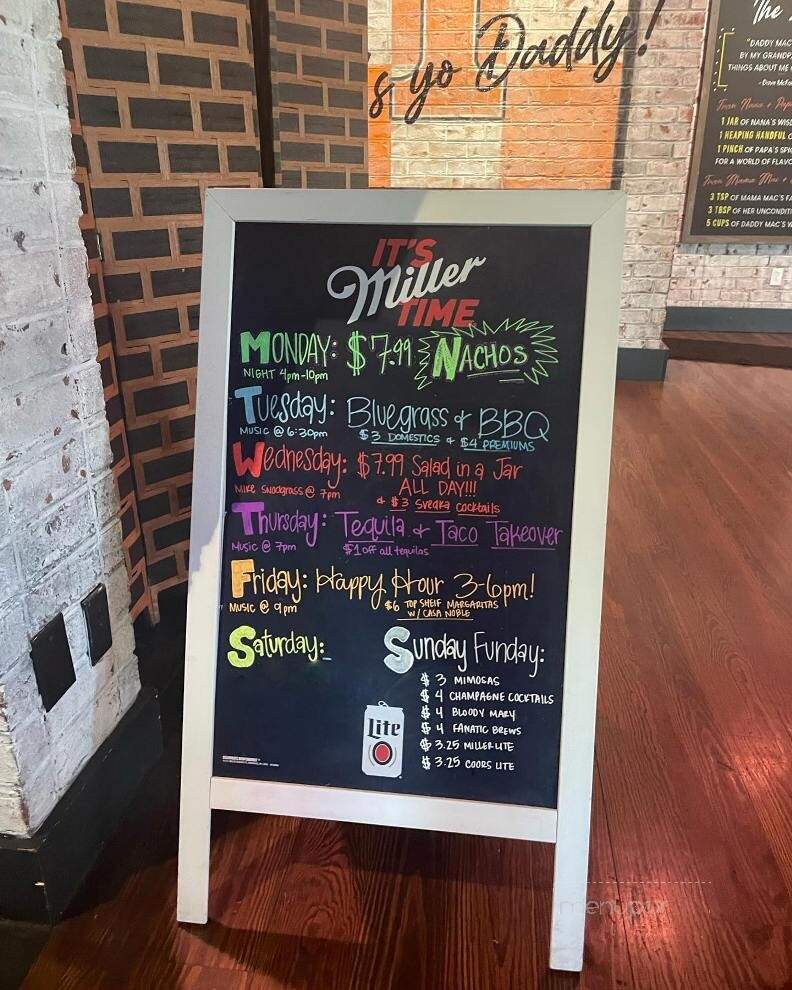 s yo Daddy!
"DADDY MAC
BY MY GRANDP
THINGS ABOUT ME
1 JAR OF NANA'S WIS
1 HEAPING HANDFUL
1 PINCH OF PAPA'S SPI
FOR A WORLD OF FLAVO
3 TSP OF MAMA MAC'S FA
3 TBSP OF HER UNCONDITI
5 CUPS OF DADDY MAC'S W
IT'S
Miller
TIME
MONDAY: $7.99 NACHOS
NIGHT 4pm-10pm
Tuesday: Bluegrass & BBQ
MUSIC @ 6:30pm $3 DOMESTICS & $4 PREMIUMS
Wednesday: $7.99 Salad in a Jar
ALL DAY!!!
MIKE SNODGRASS @ 7pm
& $3 Svedka cocktails
Thursday: Tequila & Taco Takeover
Music @ 7pm $1 off all tequilas
Friday: Happy Hour 3-6pm!
MUSIC @ 9pm $6 TOP SHELF MARGARITAS
W/ CASA NOBLE
Saturday:
Sunday Funday:
$3 MIMOSAS
$4 CHAMPAGNE COCKTAILS
$4 BLOODY MARY
$4 FANATIC BREWS
$3.25 MILLER LITE
$3.25 COORS LITE
Lite
menupix